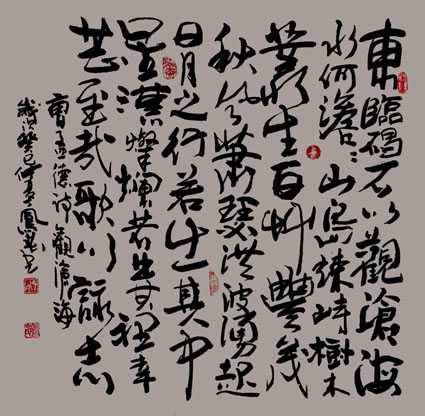 東臨碣石以觀滄海
水何澹〻山島竦峙樹木
叢生百艸豐茂
秋風蕭瑟洪波湧起
日月之行若出其中
星漢燦爛若出其裡幸
甚至哉歌以詠志
曹孟德詩觀滄海
歲次癸巳仲夏鳳